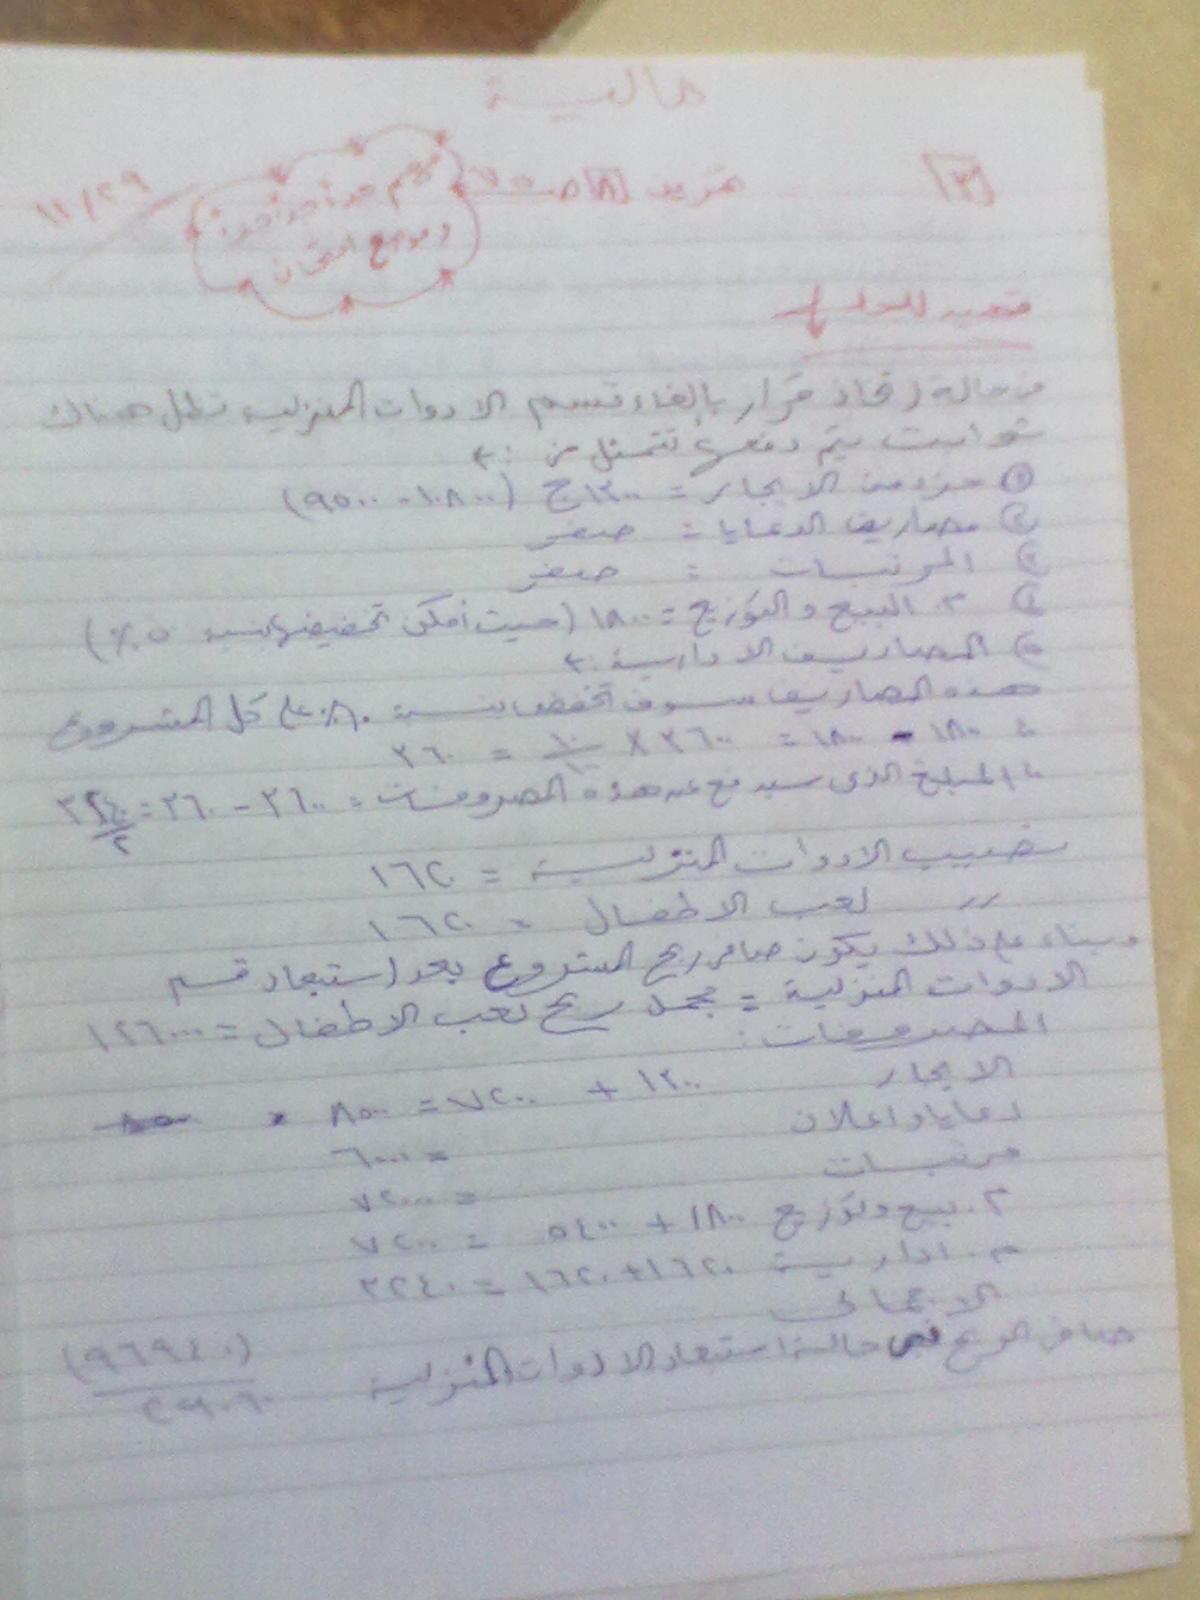 مالية
[٣] تمرين [٨] ص ٧ ١١/٢٩
مهم جداً جداً جداً
ومواضع امتحان
تمهيد للحل
من حالة اتخاذ قرار بإلغاء قسم الادوات المنزلية تظل هناك
ثوابت يتم دفعها تتمثل من :-
① جزء من الايجار = ١٣٠٠ ج (١٠٨٠٠ - ٩٥٠٠)
② مصاريف الدعايا = صفر
③ المرتبات = صفر
④ م. البيع والتوزيع = ١٨٠٠ (حيث أمكن تخفيضها بنسبة ٥٠٪)
⑤ المصاريف الادارية :-
هذه المصاريف سوف تخفض بنسبة ١٠٪ على كل المشروع
١٨٠٠ - ١٨٠٠ = ٣٦٠٠ × ١٠/١٠٠ = ٣٦٠
المبلغ الذى سيدفع عن هذه المصروفات = ٣٦٠٠ - ٣٦٠ = ٣٢٤٠/٢
نصيب الادوات المنزلية = ١٦٢٠
〃 لعب الاطفال = ١٦٢٠
وبناء على ذلك يكون صافى ربح المشروع بعد استبعاد قسم
الادوات المنزلية = مجمل ربح لعب الاطفال = ١٢٦٠٠٠
المصروفات :
الايجار ١٣٠٠ + ٧٢٠٠ = ٨٥٠٠
دعايا واعلان = ٦٠٠٠
مرتبات = ٧٢٠٠٠
م. بيع وتوزيع ١٨٠٠ + ٥٤٠٠ = ٧٢٠٠
م. ادارية ١٦٢٠ + ١٦٢٠ = ٣٢٤٠
الاجمالى (٩٦٩٤٠)
صافى الربح فى حالة استبعاد الادوات المنزلية ٢٩٠٦٠